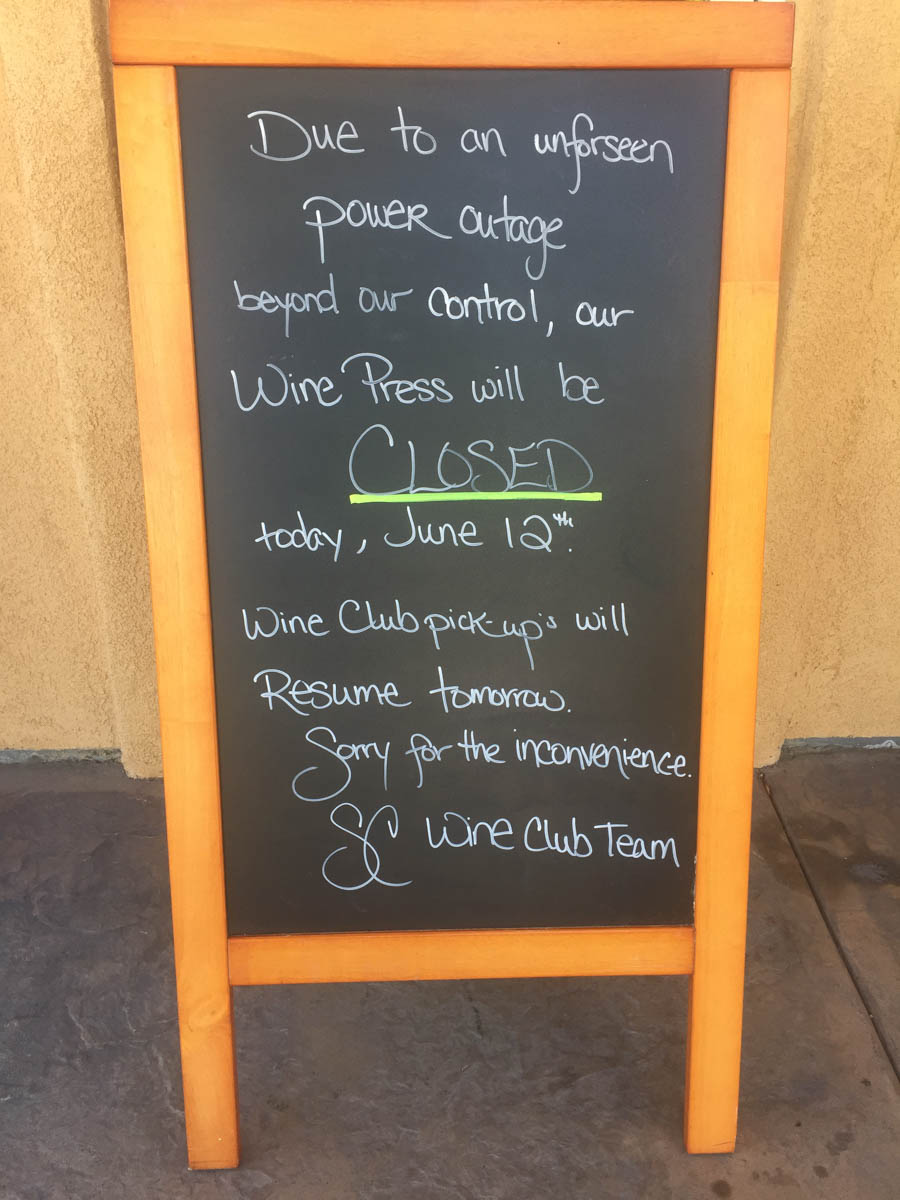 Due to an unforseen
power outage
beyond our control, our
Wine Press will be
CLOSED
today, June 12th.
Wine Club pick-up's will
Resume tomorrow.
Sorry for the inconvenience.
SC Wine Club Team